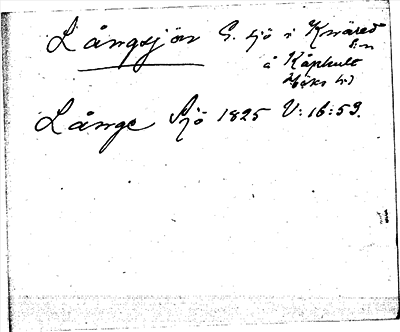 Långsjön S. sjö i Knäred
sn
å Kåphult
Höks hd
Långe Sjö 1825 V: 16: 59.